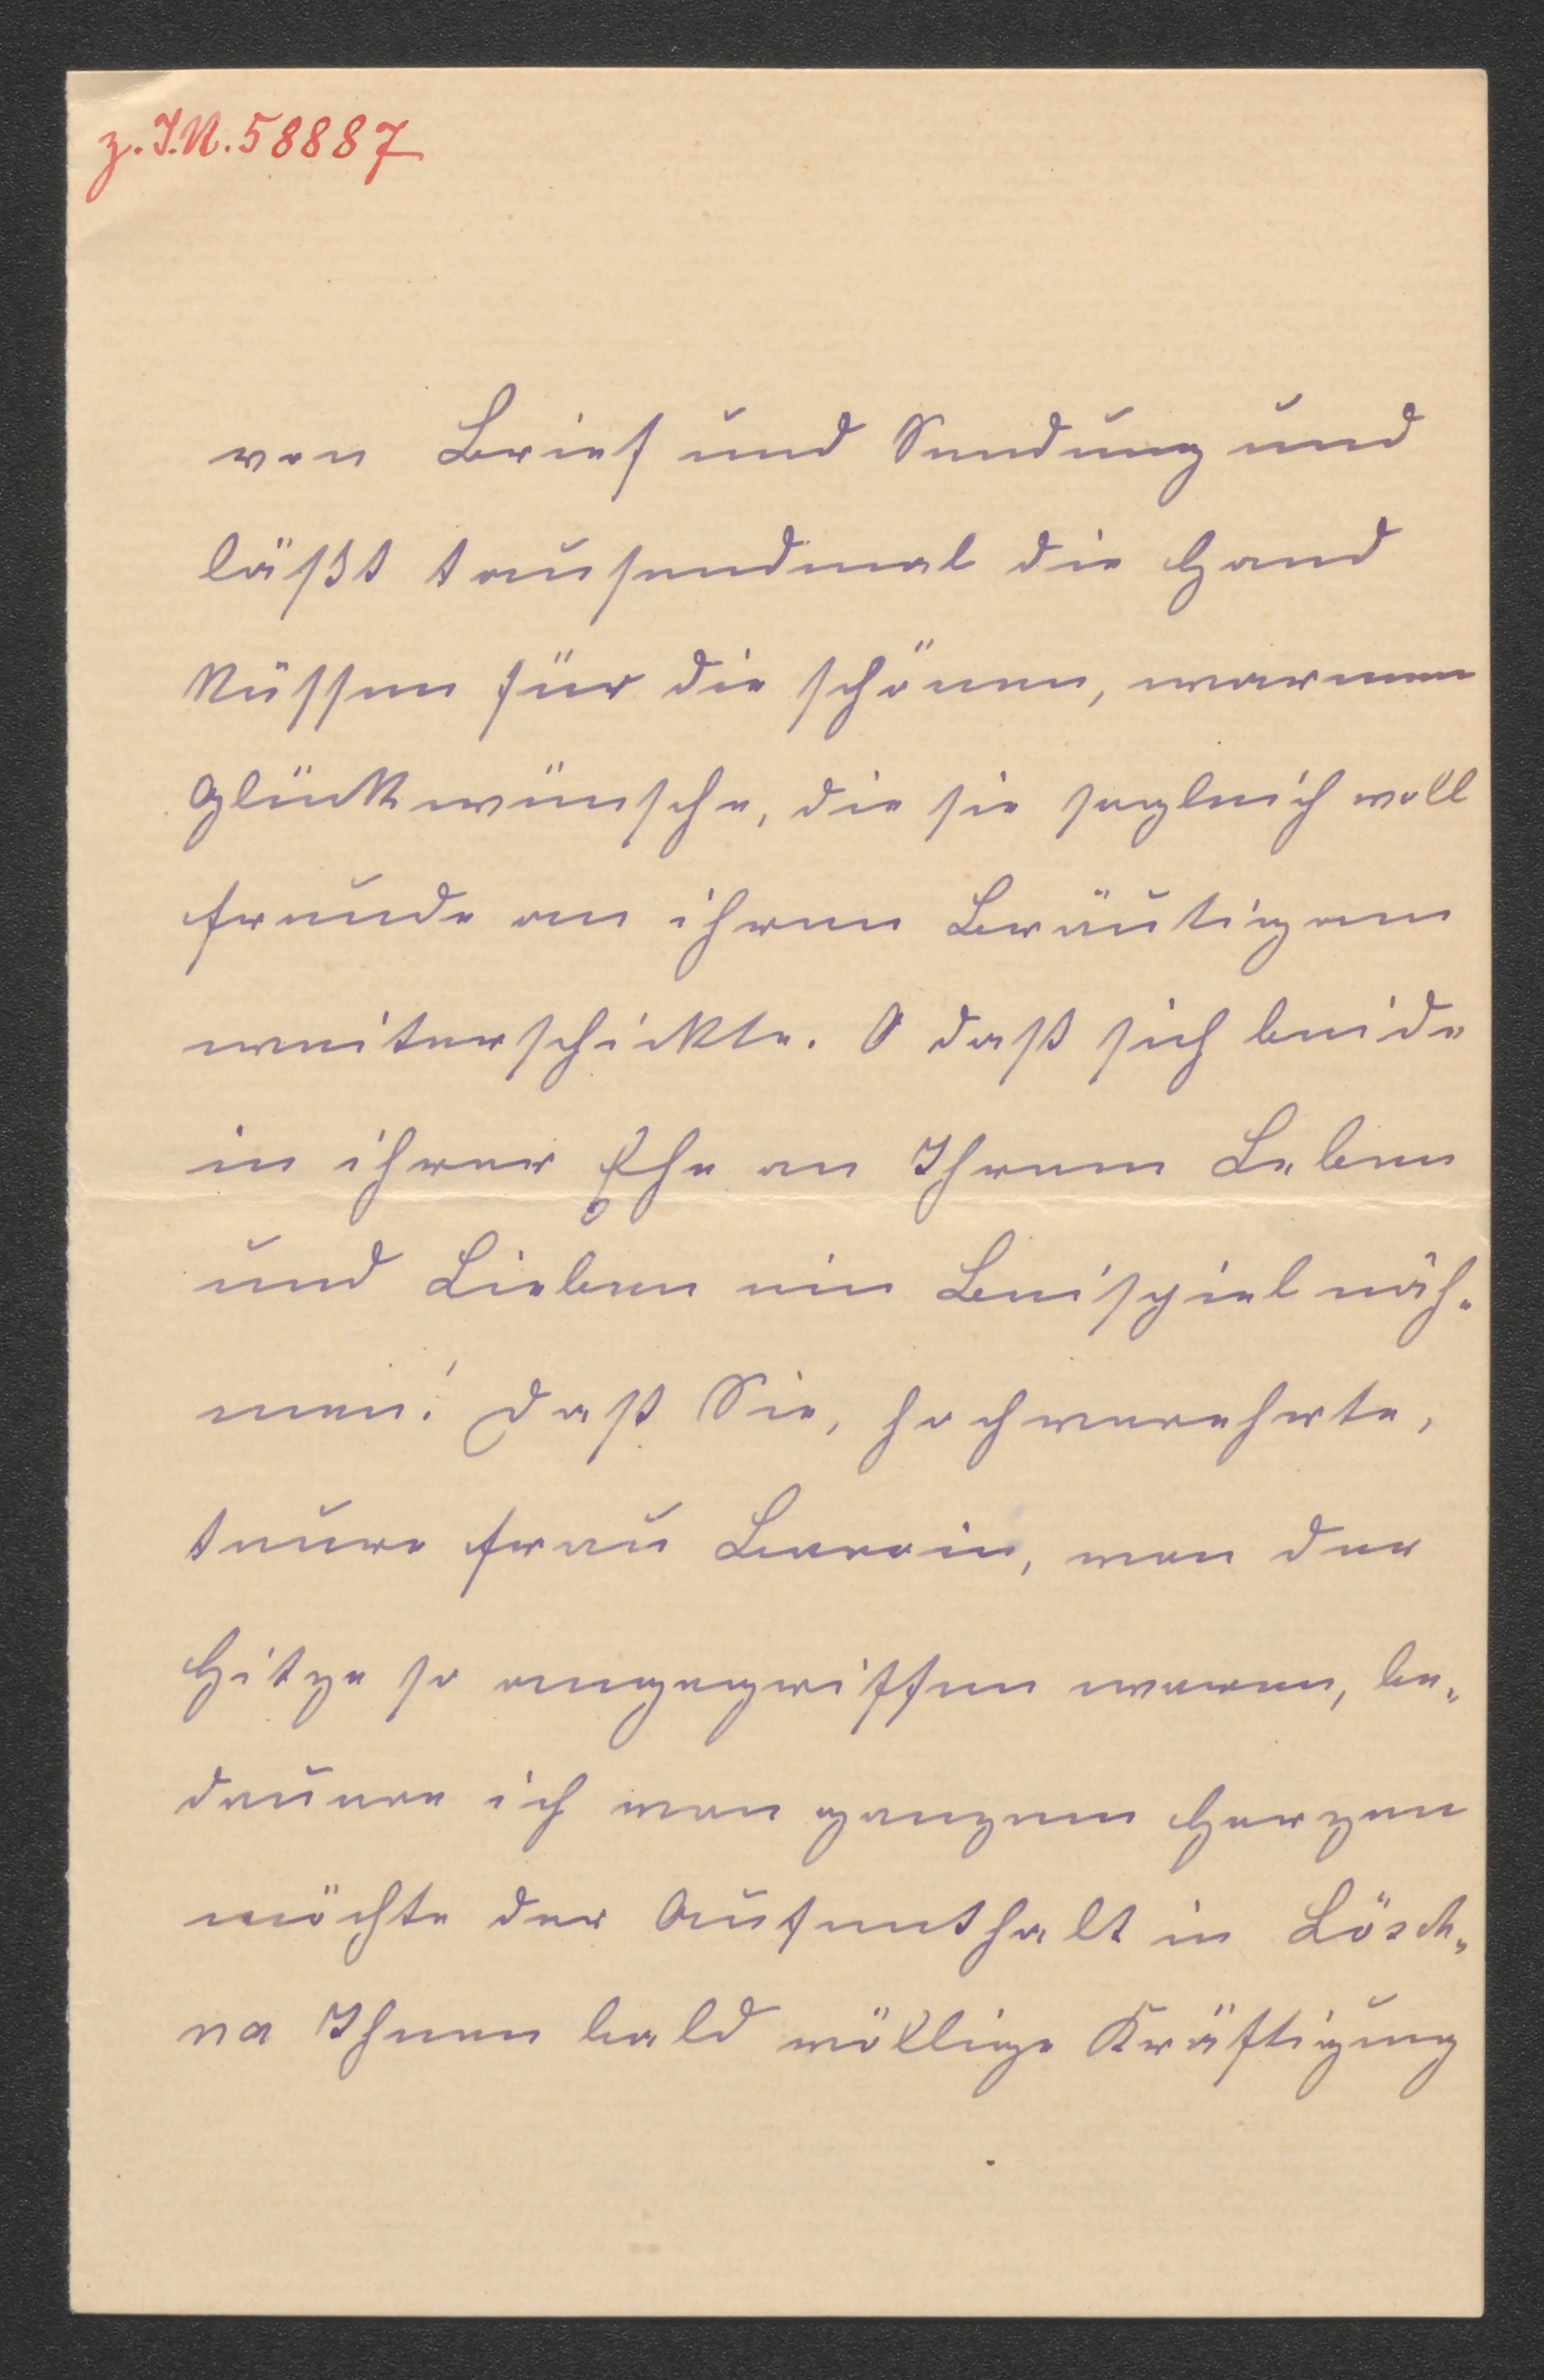 z. I.N. 58887
von Brief und Sendung und
läßt tausendmal die Hand
küssen für die schönen, warmen
Glückwünsche, die sie sogleich voll
Freude an ihren Bräutigam
weiterschickte. O daß sich beide
in ihrer Ehe an Ihrem Leben
und Lieben ein Beispiel näh-
men! Daß Sie, hochverehrte,
teure Frau Baronin, von der
Hitze so angegriffen waren, be-
dauere ich von ganzem Herzen
möchte der Aufenthalt in Lösch-
na Ihnen bald völlige Kräftigung